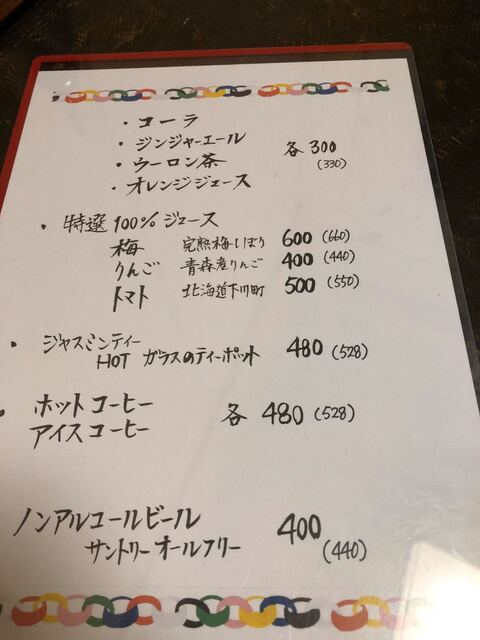 ・コーラ
・ジンジャーエール
・ウーロン茶 各300
(330)
・オレンジジュース
・特選100%ジュース
梅 完熟梅しぼり 600 (660)
りんご 青森産りんご 400 (440)
トマト 北海道下川町 500 (550)
・ジャスミンティー
HOT ガラスのティーポット 480 (528)
・ホットコーヒー
アイスコーヒー 各480 (528)
ノンアルコールビール 400
サントリーオールフリー (440)